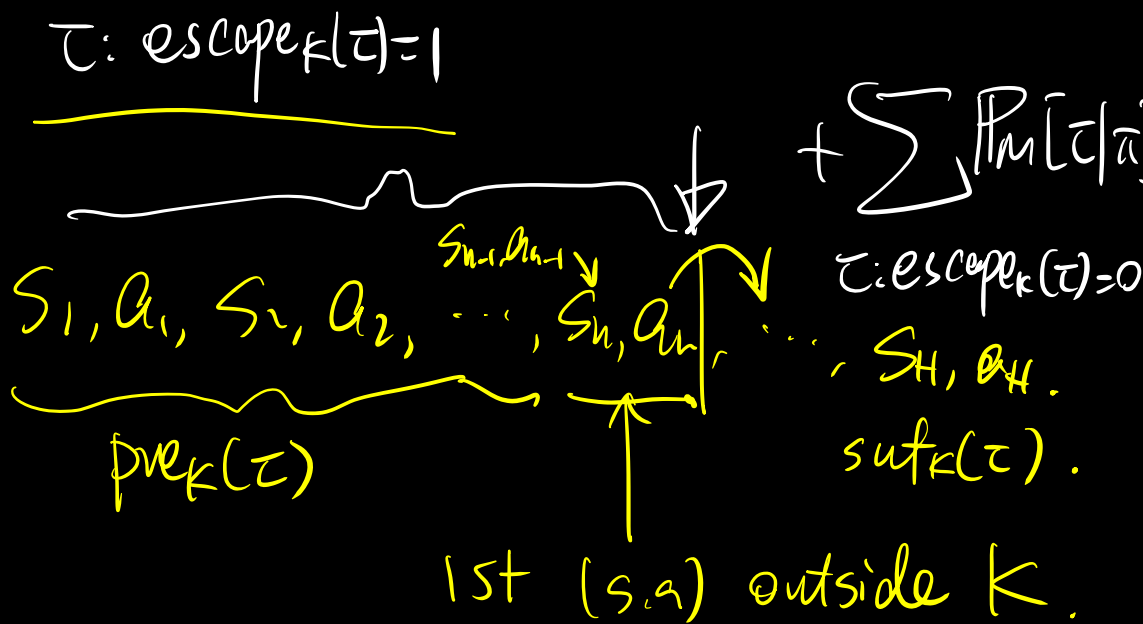 τ: escape_K(τ)=1
+ ∑ ℙ_M[τ|π]
τ: escape_K(τ)=0
s_{h-1}, a_{h-1}
s_1, a_1, s_2, a_2, ..., s_h, a_h, ..., s_H, a_H.
pre_K(τ)
suf_K(τ).
1st (s,a) outside K.